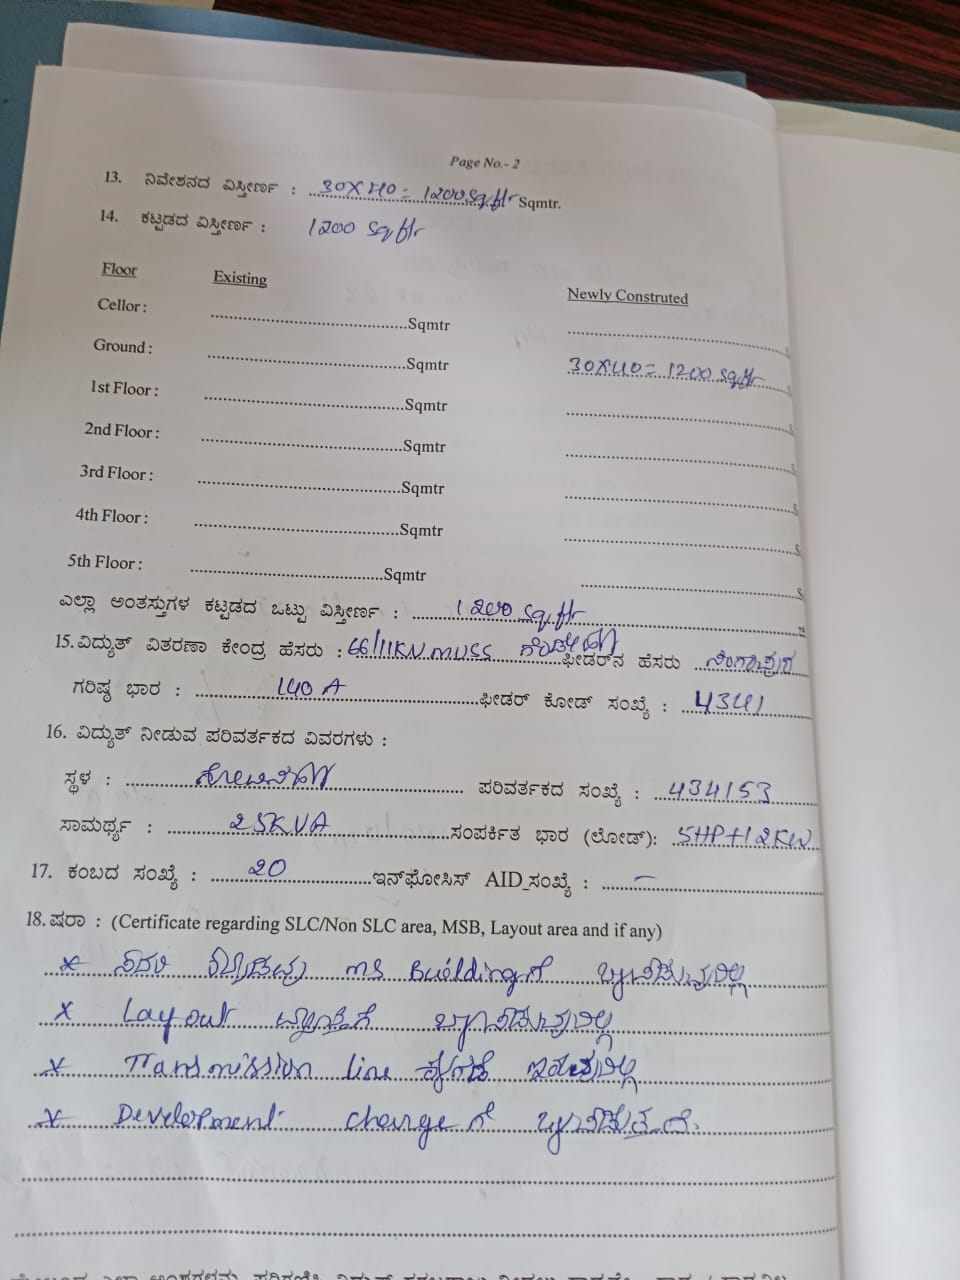 Page No.- 2
13. ನಿವೇಶನದ ವಿಸ್ತೀರ್ಣ : 30X40= 1200 Sq.ftr Sqmtr.
14. ಕಟ್ಟಡದ ವಿಸ್ತೀರ್ಣ : 1200 Sq.ftr
Floor Existing Newly Construted
Cellor : ........Sqmtr ........
Ground : ........Sqmtr 30X40= 1200 sq.ftr
1st Floor : ........Sqmtr ........
2nd Floor : ........Sqmtr ........
3rd Floor : ........Sqmtr ........
4th Floor : ........Sqmtr ........
5th Floor : ........Sqmtr ........
ಎಲ್ಲಾ ಅಂತಸ್ತುಗಳ ಕಟ್ಟಡದ ಒಟ್ಟು ವಿಸ್ತೀರ್ಣ : 1200 sq.ftr
15. ವಿದ್ಯುತ್ ವಿತರಣಾ ಕೇಂದ್ರ ಹೆಸರು : 66/11KV MUSS ಫೀಡರ್‌ನ ಹೆಸರು
ಗರಿಷ್ಠ ಭಾರ : 140 A ಫೀಡರ್ ಕೋಡ್ ಸಂಖ್ಯೆ : 4341
16. ವಿದ್ಯುತ್ ನೀಡುವ ಪರಿವರ್ತಕದ ವಿವರಗಳು :
ಸ್ಥಳ : ಪರಿವರ್ತಕದ ಸಂಖ್ಯೆ : 434153
ಸಾಮರ್ಥ್ಯ : 25KVA ಸಂಪರ್ಕಿತ ಭಾರ (ಲೋಡ್): 5HP+12KW
17. ಕಂಬದ ಸಂಖ್ಯೆ : 20 ಇನ್‌ಫೋಸಿಸ್ AID_ಸಂಖ್ಯೆ : —
18. ಷರಾ : (Certificate regarding SLC/Non SLC area, MSB, Layout area and if any)
* ಸದರಿ ಮಾಡಿದ್ದು MS Buildingಗೆ ಬರುವುದಿಲ್ಲ
* Layout ಬರುವುದಿಲ್ಲ
* Transmission line ಕೆಳಗಡೆ ಇರುವುದಿಲ್ಲ
* Development chargeಗೆ